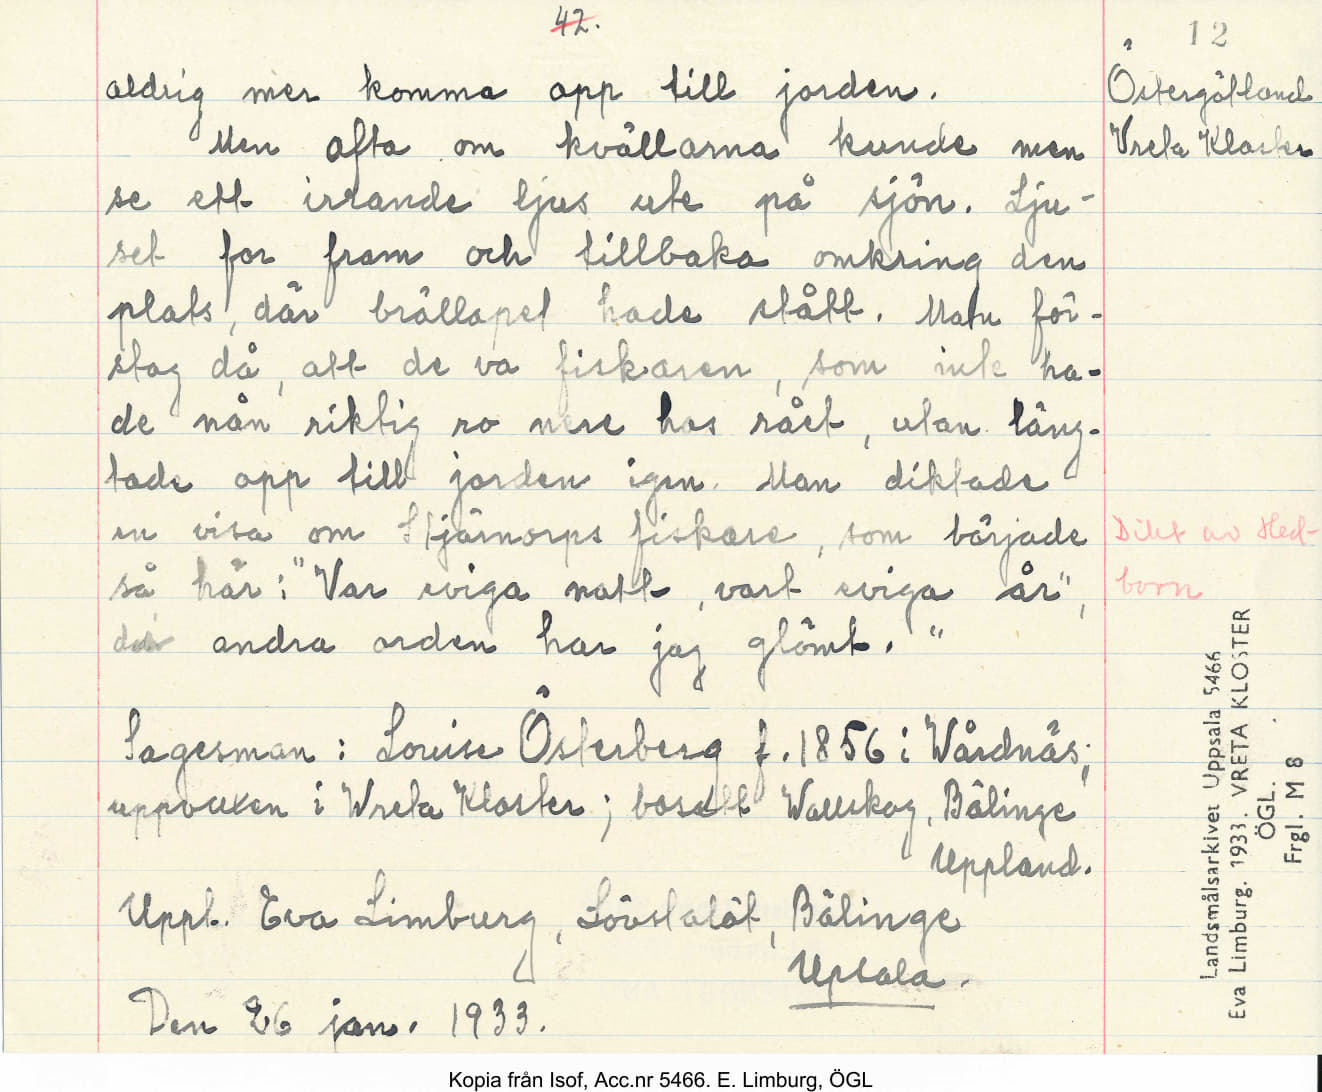 42.
12
aldrig mer komma opp till jorden.
Östergötland
Men ofta om kvällarna kunde men
Vreta Kloster
se ett irrande ljus ute på sjön. Lju-
set for fram och tillbaka omkring den
plats, där bröllopet hade stått. Man för-
stog då, att de va fiskaren, som inte ha-
de nån riktig ro nere hos rået, utan läng-
tade opp till jorden igen. Man diktade
en visa om Stjärnorps fiskare, som började
så här: "Var eviga natt, vart eviga år",
Dikt av Hed-
born
andra orden har jag glömt."
Sagesman: Louise Österberg f. 1856 i Wårdnäs;
uppvuxen i Wreta Kloster; bosatt Wallskog, Bälinge
Uppland.
Uppt. Eva Limburg, Lövstalöt, Bälinge
Upsala.
Den 26 jan. 1933.
Landsmålsarkivet Uppsala 5466
Eva Limburg. 1933. VRETA KLOSTER
ÖGL.
Frgl. M 8
Kopia från Isof, Acc.nr 5466. E. Limburg, ÖGL